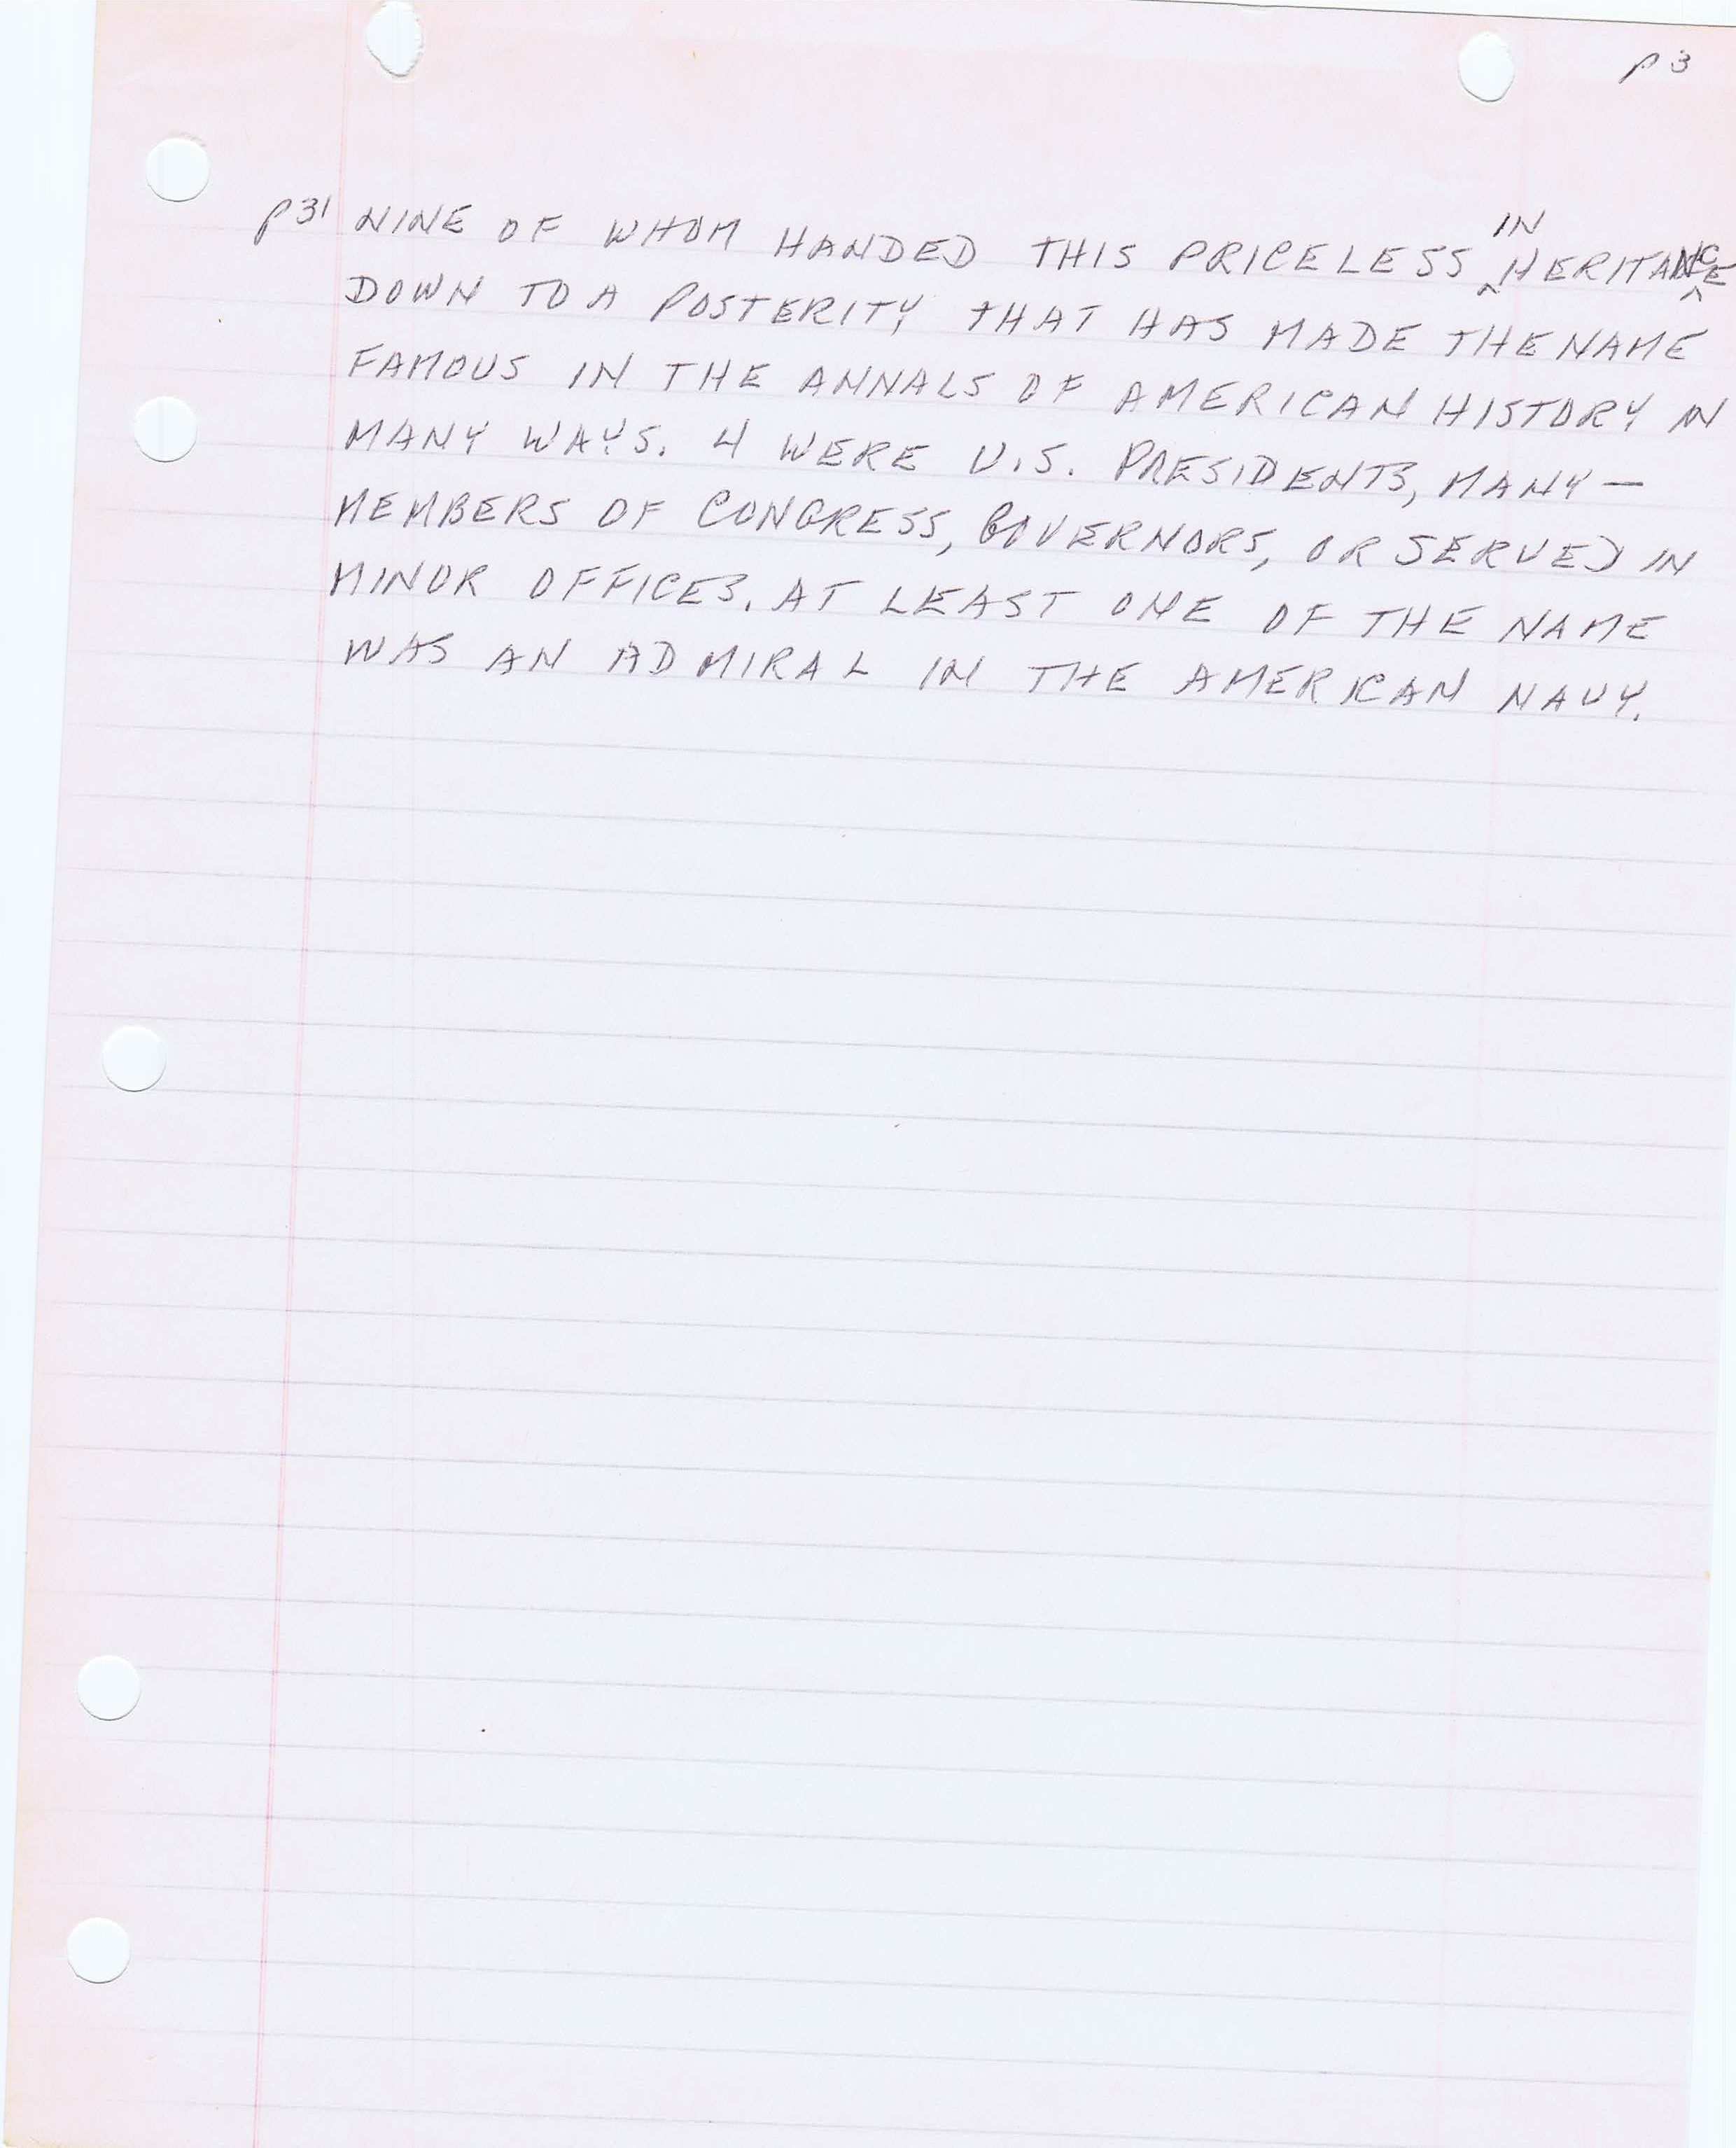 p 3
p31 NINE OF WHOM HANDED THIS PRICELESS INHERITANCE
DOWN TO A POSTERITY THAT HAS MADE THE NAME
FAMOUS IN THE ANNALS OF AMERICAN HISTORY IN
MANY WAYS. 4 WERE U.S. PRESIDENTS, MANY —
MEMBERS OF CONGRESS, GOVERNORS, OR SERVED IN
MINOR OFFICES. AT LEAST ONE OF THE NAME
WAS AN ADMIRAL IN THE AMERICAN NAVY.